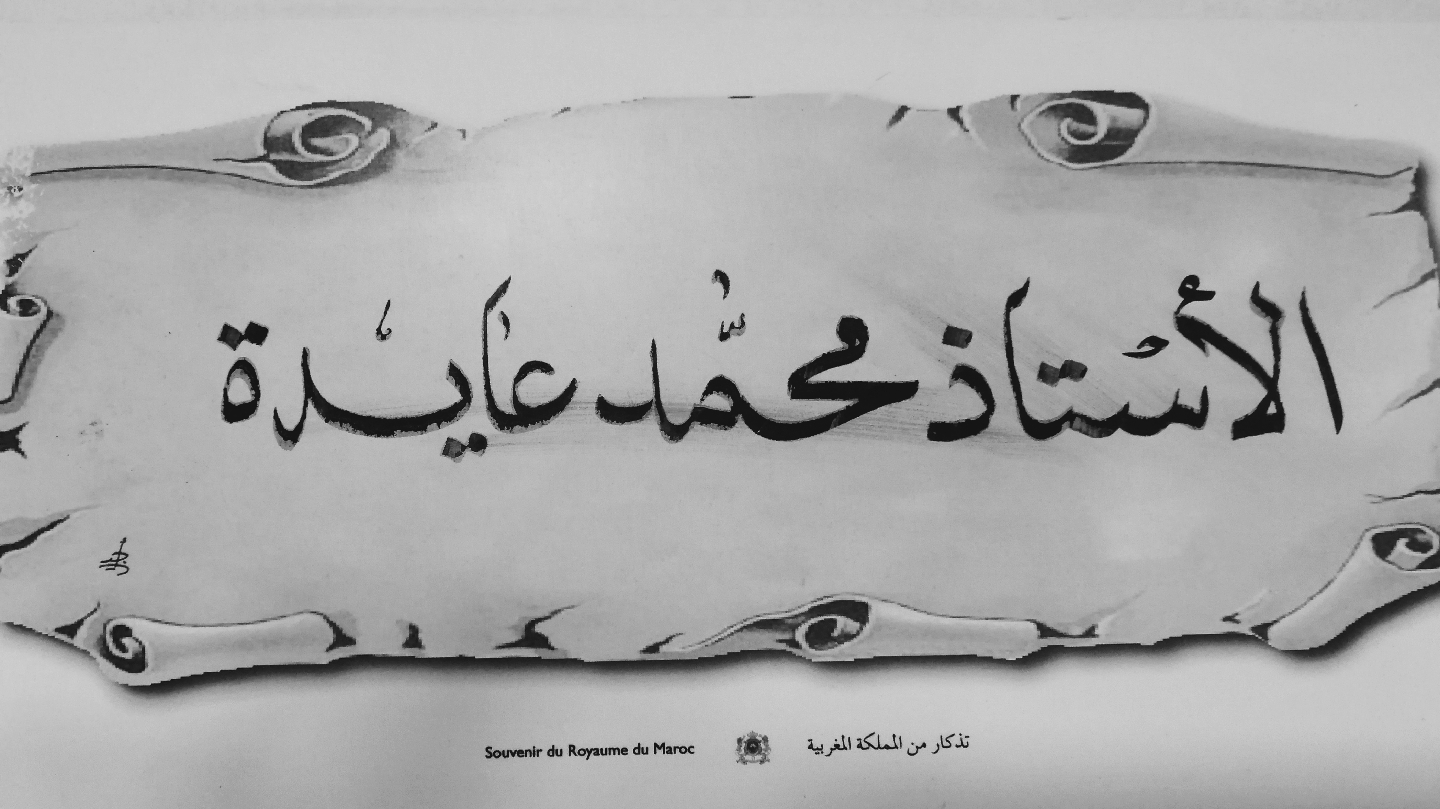 الأُستاذ محمّد عايدة
Souvenir du Royaume du Maroc تذكار من المملكة المغربية